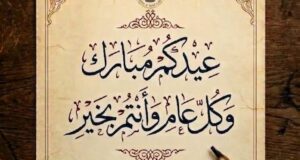 عِيدُكُمْ مُبَارَك
وَكُلُّ عَامٍ وَأَنْتُمْ بِخَيْرٍ